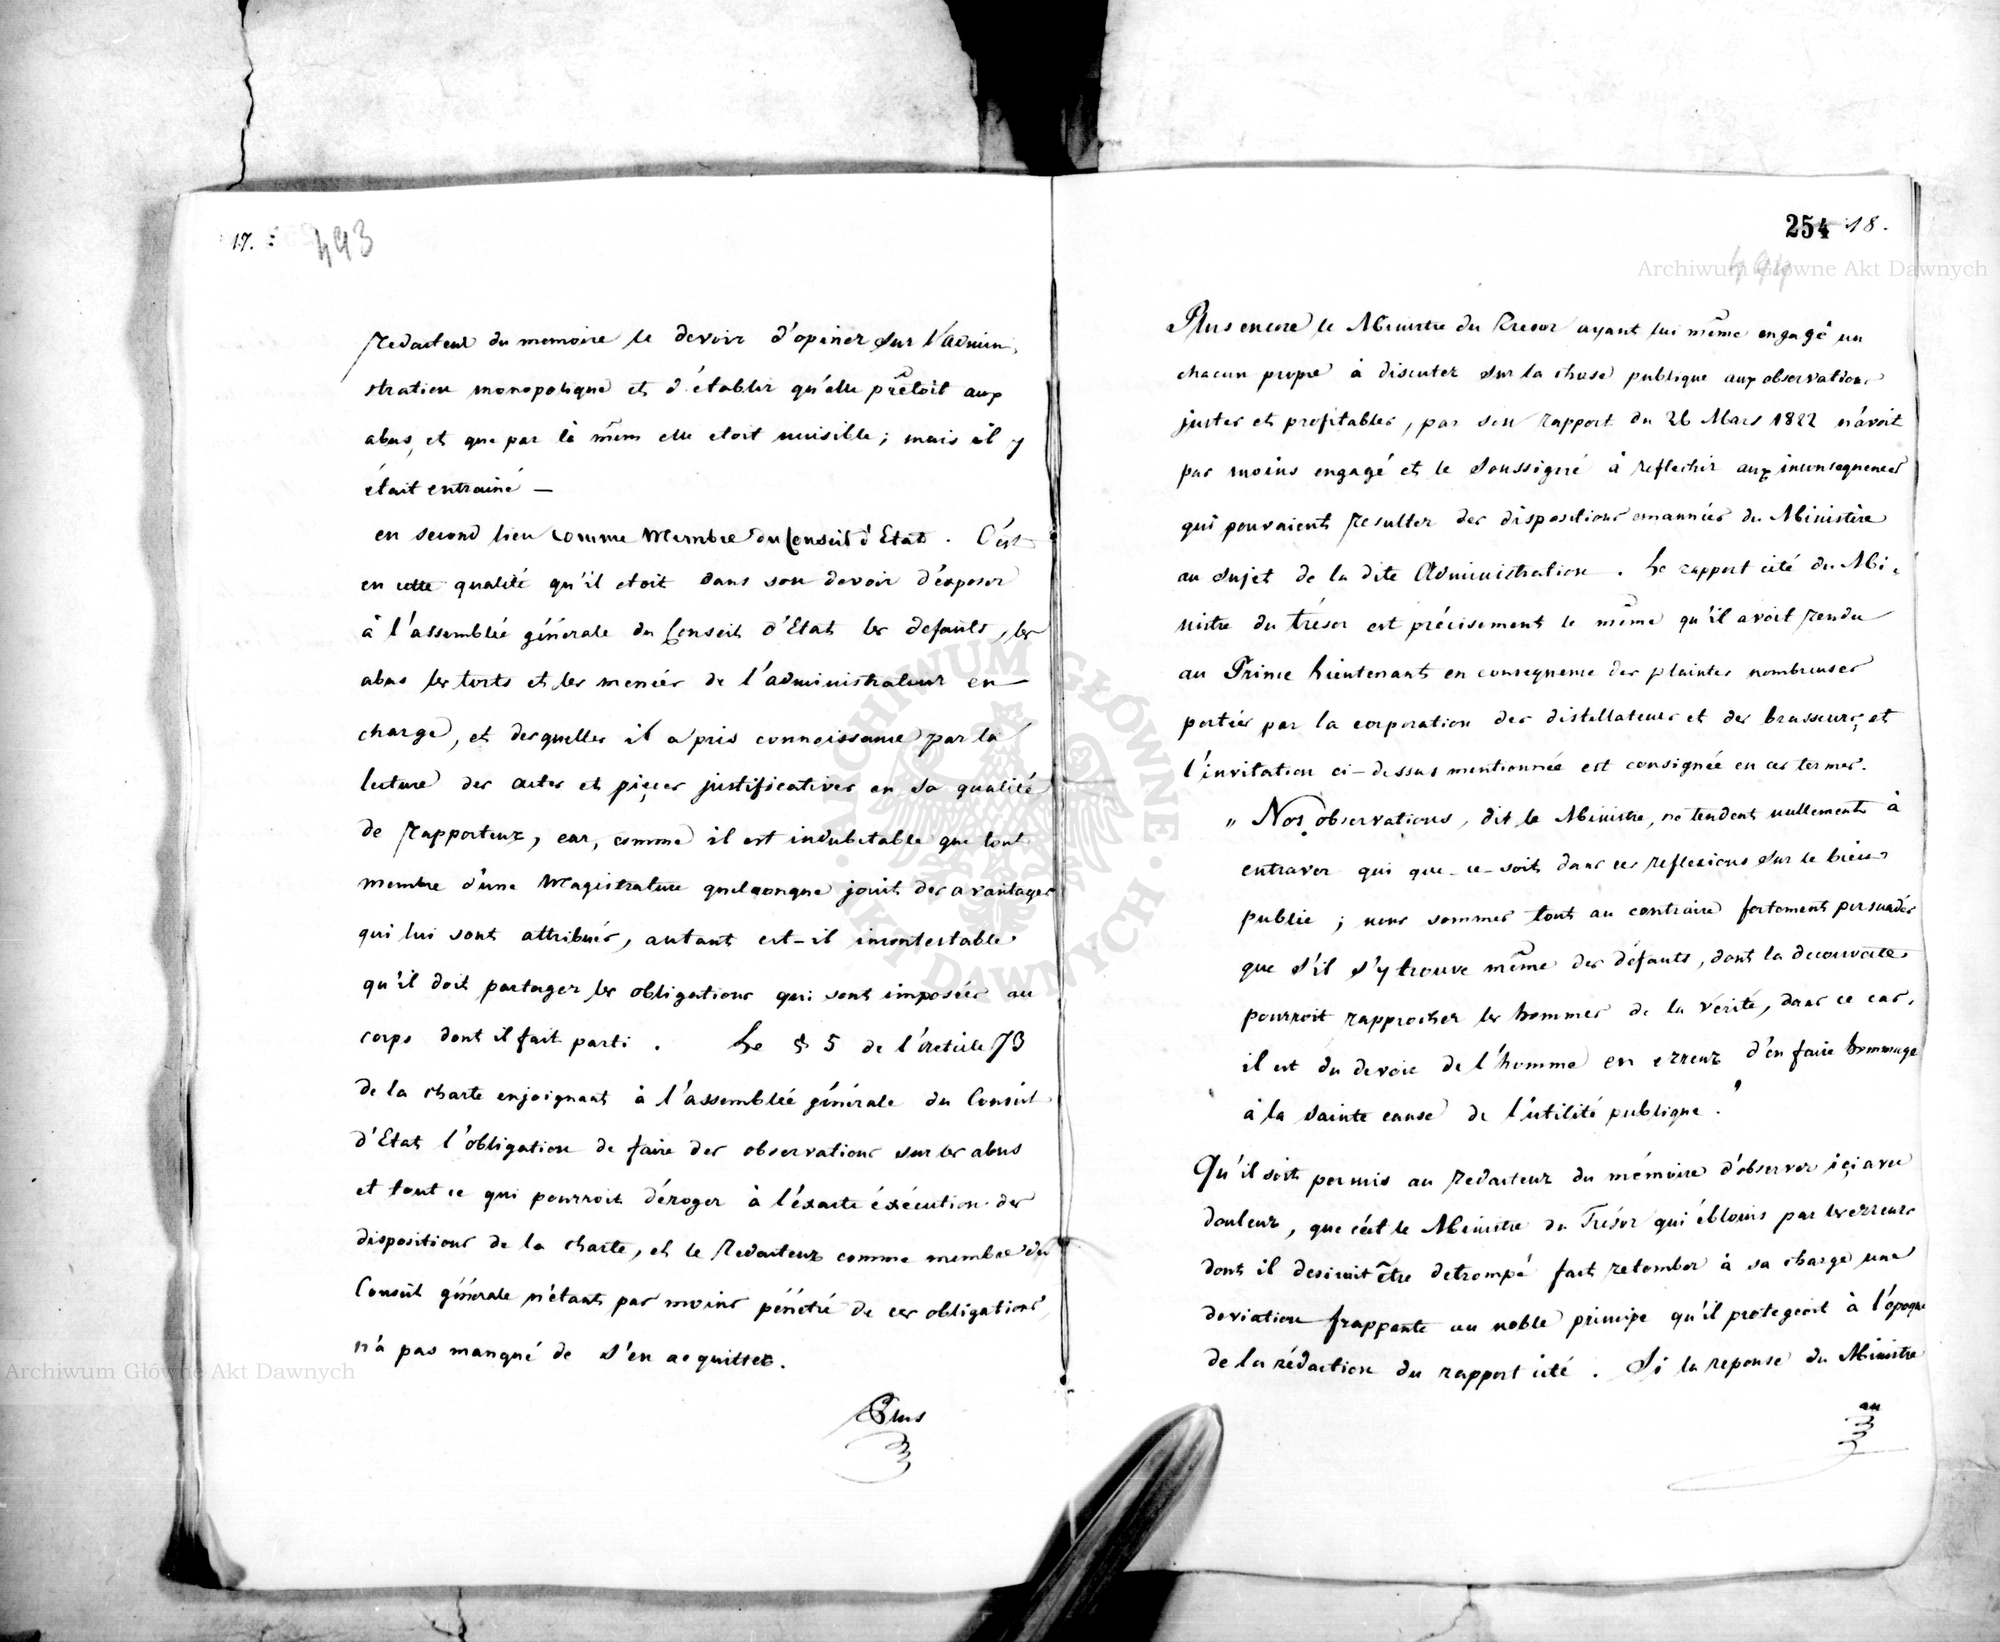 17.
493
redacteur du memoire le devoir d'opiner sur l'admini,
stration monopolique et d'établir qu'elle prêtoit aux
abus, et que par là même elle etoit nuisible; mais il y
était entrainé —
en second lieu comme Membre du Conseil d'Etat. C'est
en cette qualité qu'il etoit dans son devoir d'exposer
à l'assemblée générale du Conseil d'Etat les defauts, les
abus les torts et les menées de l'administrateur en
charge, et desquelles il a pris connoissance par la
lecture des actes et pièçes justificatives en sa qualité
de rapporteur, car, comme il est indubitable que tout
membre d'une Magistrature quelconque jouit des avantages
qui lui sont attribués, autant est-il incontestable
qu'il doit partager les obligations qui sont imposées au
corps dont il fait parti. Le § 5 de l'Article 73
de la charte enjoignant à l'assemblée générale du Conseil
d'Etat l'obligation de faire des observations sur les abus
et tout ce qui pourroit déroger à l'éxacte éxécution des
dispositions de la charte, et le redacteur comme membre du
Conseil générale n'étant pas moins pénétré de ces obligations,
n'a pas manqué de s'en acquitter.
Plus
254 18.
494
Plus encore le Ministre du Tresor ayant lui même engagé un
chacun propre à discuter sur la chose publique aux observations
justes et profitables, par son rapport du 26 Mars 1822 n'avoit
pas moins engagé et le soussigné à reflechir aux inconsequences
qui pouvaient resulter des dispositions emannées du Ministère
au sujet de la dite Administration. Le rapport cité du Mi,
nistre du trésor est précisement le même qu'il avoit rendu
au Prince Lieutenant en consequence des plaintes nombreuses
portées par la corporation des distillateurs et des brasseurs, et
l'invitation ci-dessus mentionnée est consignée en ces termes.
„ Nos observations, dit le Ministre, ne tendent nullement à
entraver qui que-ce-soit dans ces reflexions sur le bien
public; nous sommes tout au contraire fortement persuadés
que s'il s'y trouve même des défauts, dont la decouverte
pourroit rapprocher les hommes de la vérité, dans ce cas,
il est du devoir de l'homme en erreur d'en faire hommage
à la sainte cause de l'utilité publique."
Qu'il soit permis au redacteur du mémoire d'observer içi avec
douleur, que c'est le Ministre du Trésor qui éblouis par les erreurs
dont il desiroit être detrompé fait retomber à sa charge une
deviation frappante au noble principe qu'il protegeoit à l'époque
de la rédaction du rapport cité. Si la reponse du Ministre
au
Archiwum Główne Akt Dawnych
Archiwum Główne Akt Dawnych
ARCHIWUM GŁÓWNE AKT DAWNYCH